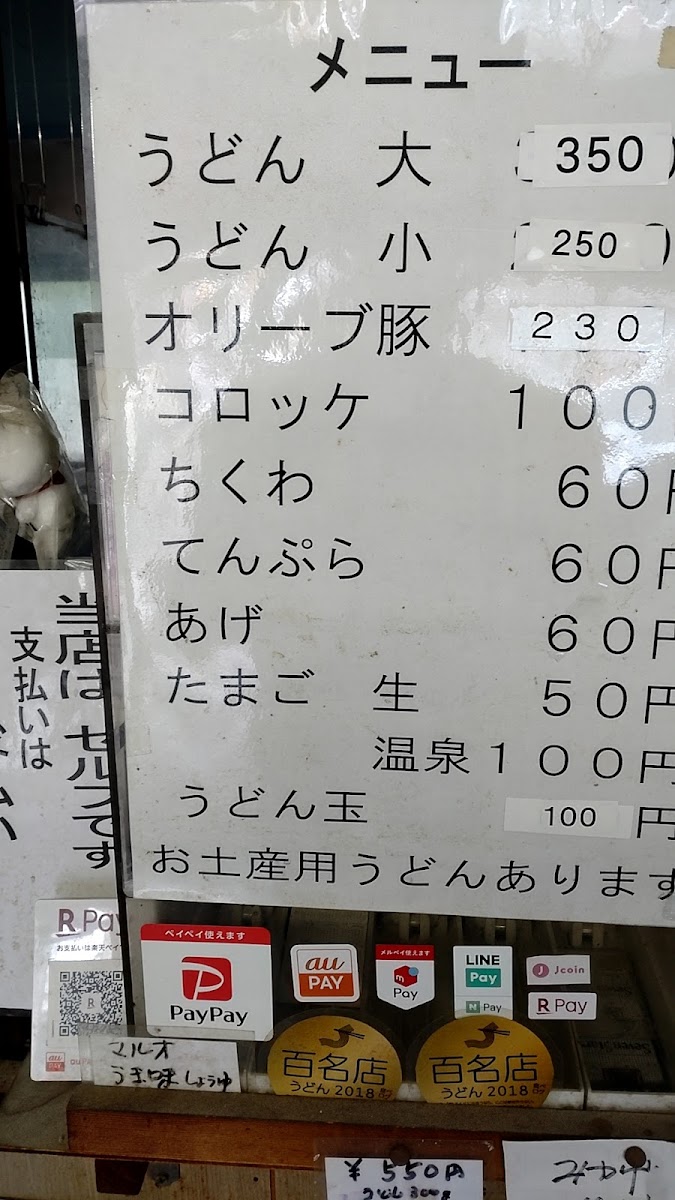 メニュー
うどん 大 350
うどん 小 250
オリーブ豚 230
コロッケ 100
ちくわ 60円
てんぷら 60円
あげ 60円
たまご 生 50円
温泉 100円
うどん玉 100 円
お土産用うどんあります
当店は セルフです
支払いは
R Pay
お支払いは楽天ペイで
au PAY
ペイペイ使えます
PayPay
au PAY
メルペイ使えます
Pay
LINE Pay
N Pay
J Jcoin
R Pay
マルオ
うま味しょうゆ
百名店
うどん 2018
百名店
うどん 2018
SevenStars
¥550円
うどん300g